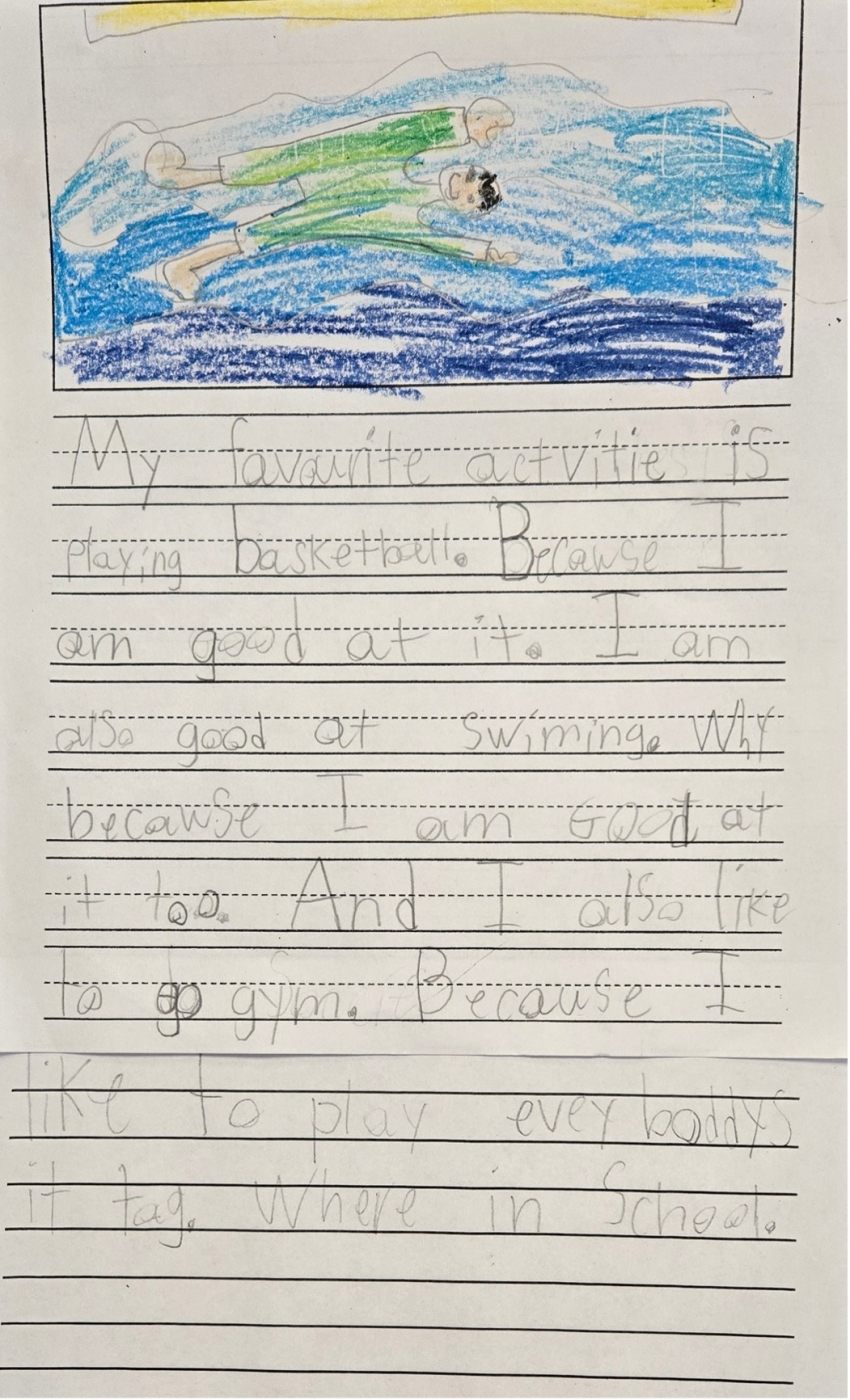 My favourite actvitie is
playing basketball. Because I
am good at it. I am
also good at swiming. Why
because I am Good at
it too. And I also like
to go gym. Because I
like to play evey boddys
it tag. Where in School.